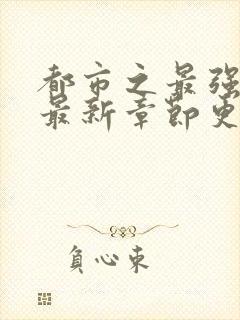 都市之最强
最新章节更
负心束